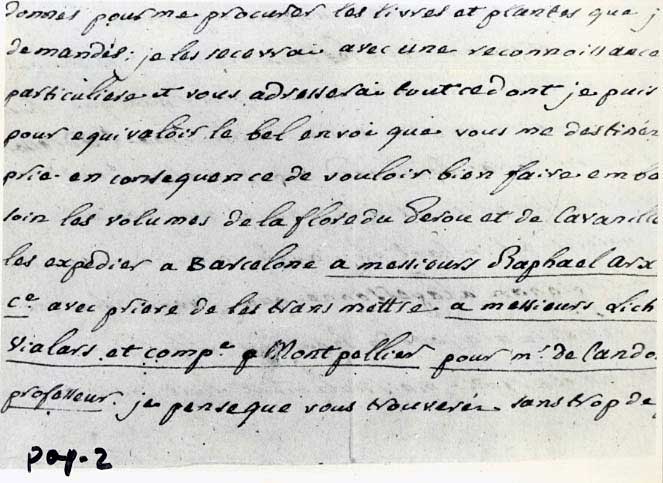 donnés pour me procurer les livres et plantes que j
demandés: je les recevrai avec une reconnoissance
particuliere et vous adresserai tout ce dont je puis
pour equivaloir le bel envoi que vous me destinéz
prie en consequence de vouloir bien faire emba
soin les volumes de la flore du Perou et de Cavanill
les expedier a Barcelone a messieurs Raphael arx
ce avec priere de les transmettre a messieurs Lich
vialars et compe p Montpellier pour mr. de Cando
professeur. je pense que vous trouveréz sans trop de
pag. 2